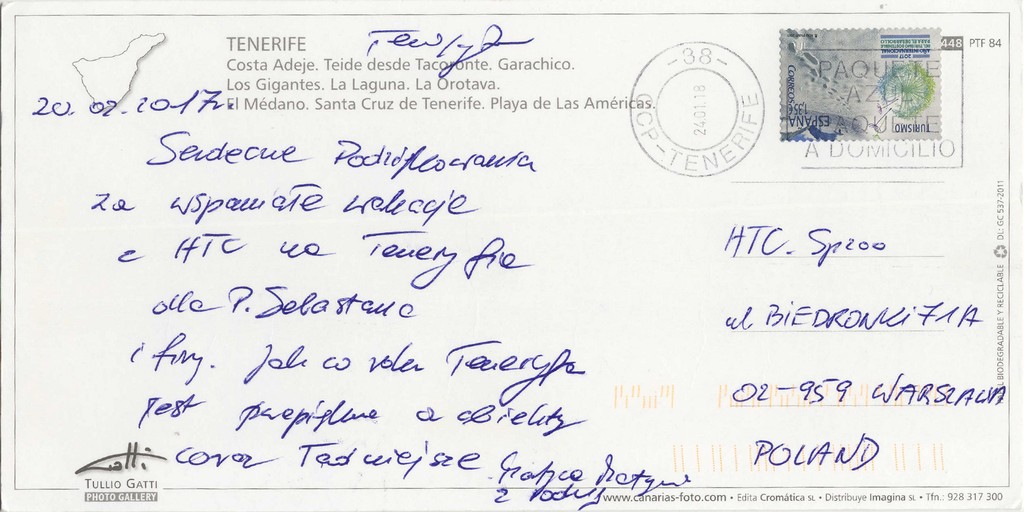 TENERIFE
Costa Adeje. Teide desde Tacoronte. Garachico.
Los Gigantes. La Laguna. La Orotava.
El Médano. Santa Cruz de Tenerife. Playa de Las Américas.
20.02.2017
Serdecne Podziękowania
za wspaniałe wakacje
z HTC na Teneryfie
dla P. Sebastiana
i firmy. Jak co roku Teneryfa
Jest przepiękna a obiekty
coraz Ładniejsze
TULLIO GATTI
PHOTO GALLERY
-38-
24.01.18
CCP-TENERIFE
448 PTF 84
AÑO INTERNACIONAL
DEL TURISMO SOSTENIBLE
PARA EL DESARROLLO
2017
CORREOS
1,35€
ESPAÑA
TURISMO
PAQUETE
AZ
PAQUETE
A DOMICILIO
HTC. Sp zoo
ul. BIEDRONKI 71A
02-959 WARSZAWA
POLAND
BIODEGRADABLE Y RECICLABLE DL: GC 537-2011
www.canarias-foto.com • Edita Cromática SL • Distribuye Imagina SL • Tfn.: 928 317 300